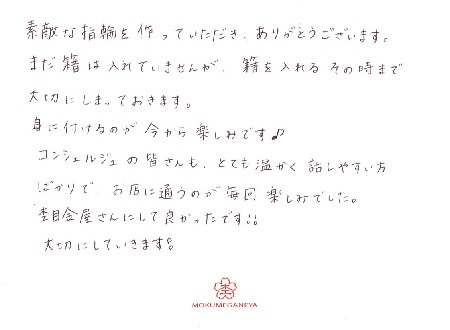 素敵な指輪を作っていただき、ありがとうございます。
まだ籍は入れていませんが、籍を入れるその時まで
大切にしまっておきます。
身に付けるのが今から楽しみです♪
コンシェルジュの皆さんも、とても温かく話しやすい方
ばかりで、お店に通うのが毎回楽しみでした。
杢目金屋さんにして良かったです!!
大切にしていきます!
杢
MOKUMEGANEYA